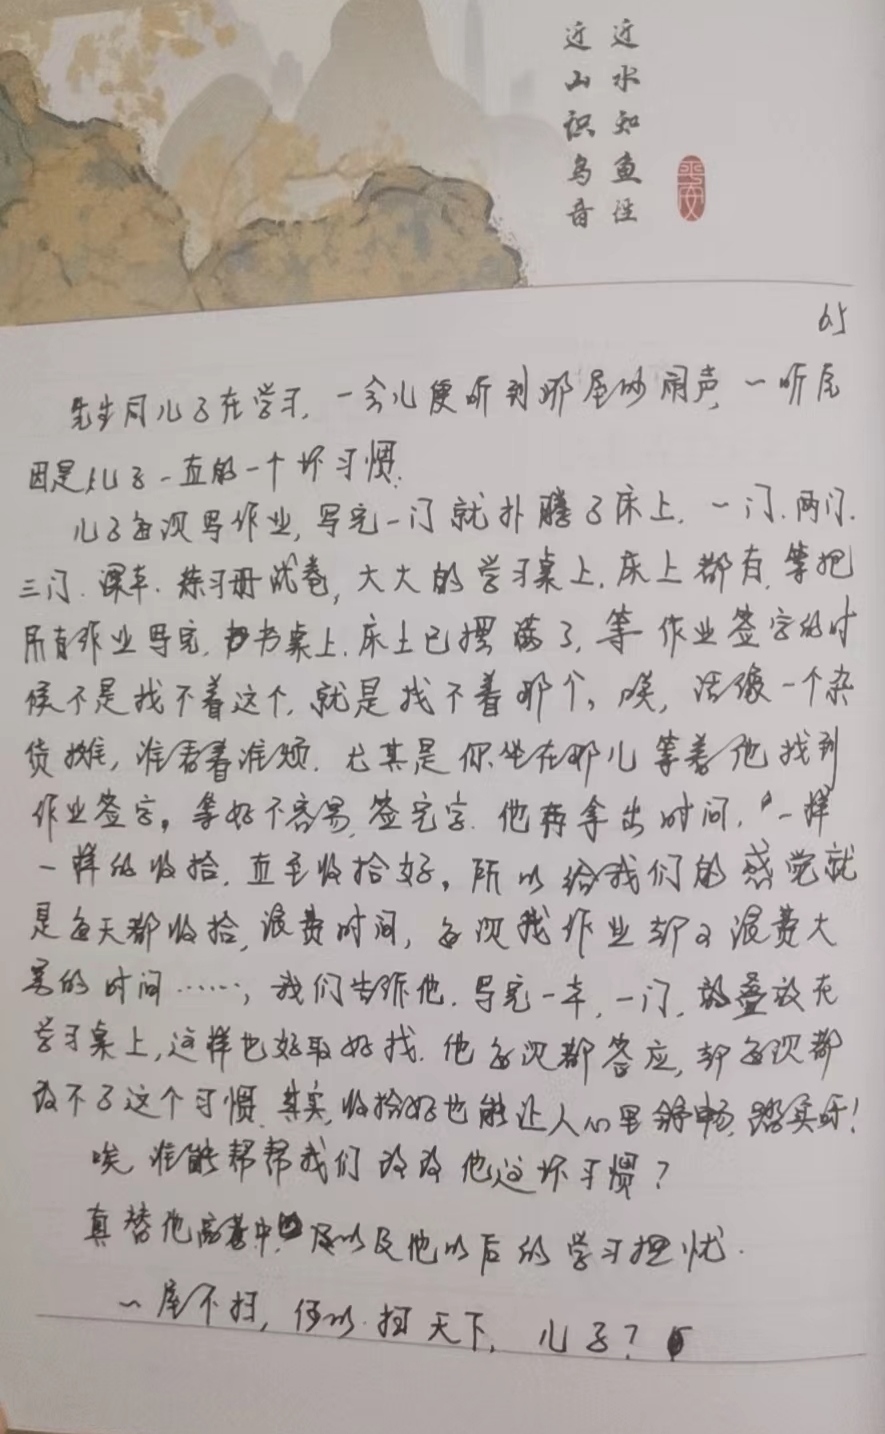 近水知鱼性
近山识鸟音
平安
65
先生同儿子在学习，一会儿便听到那屋吵闹声，一听原
因是儿子一直的一个坏习惯.
儿子每次写作业，写完一门就扑腾了床上，一门.两门.
三门.课本.练习册试卷，大大的学习桌上.床上都有.等把
所有作业写完.书桌上.床上已摆满了，等作业签字的时
候不是找不着这个，就是找不着那个。唉，活像一个杂
货摊，谁看着谁烦.尤其是你坐在那儿等着他找到
作业签字。等好不容易签完字.他再拿出时间，一样
一样的收拾.直至收拾好。所以给我们的感觉就
是每天都收拾，浪费时间，每次找作业却又浪费大
量的时间……，我们告诉他.写完一本，一门，就叠放在
学习桌上，这样也好取好找.他每次都答应，却每次都
改不了这个习惯.其实，收拾好也能让人心里舒畅，踏实呀！
唉，谁能帮帮我们改改他这坏习惯？
真替他高考中以及他以后的学习担忧.
一屋不扫，何以扫天下，儿子？